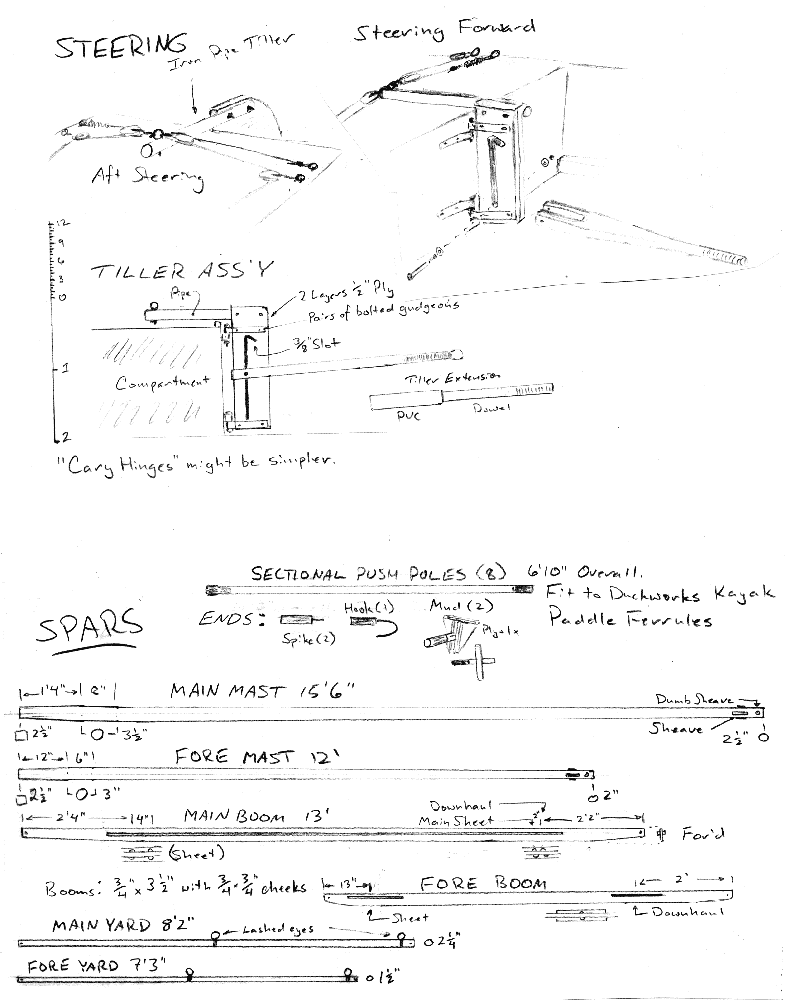 STEERING
Iron Pipe Tiller
Steering Forward
Aft Steering
12
9
6
3
0
1
2
TILLER ASS'Y
Pipe
2 Layers 1/2" Ply
Pairs of bolted gudgeons
3/8" Slot
Compartment
Tiller Extension
PVC
Dowel
"Cary Hinges" might be simpler.
SECTIONAL PUSH POLES (8) 6'10" Overall.
Fit to Duckworks Kayak
Paddle Ferrules
SPARS
ENDS:
Spike(2)
Hook(1)
Mud (2)
MAIN MAST 15'6"
1'4"
8"
Dumb Sheave
Sheave
2 1/2"
3 1/2"
2 1/2"
FORE MAST 12'
12"
6"
2 1/2"
3"
2"
MAIN BOOM 13'
2'4"
14"
Downhaul
Main Sheet
2"
2'2"
For'd
(Sheet)
Booms: 3/4" x 3 1/2" with 3/4" x 3/4" cheeks
13"
FORE BOOM
2'
Sheet
Downhaul
MAIN YARD 8'2"
Lashed eyes
2 1/4"
FORE YARD 7'3"
1 1/2"